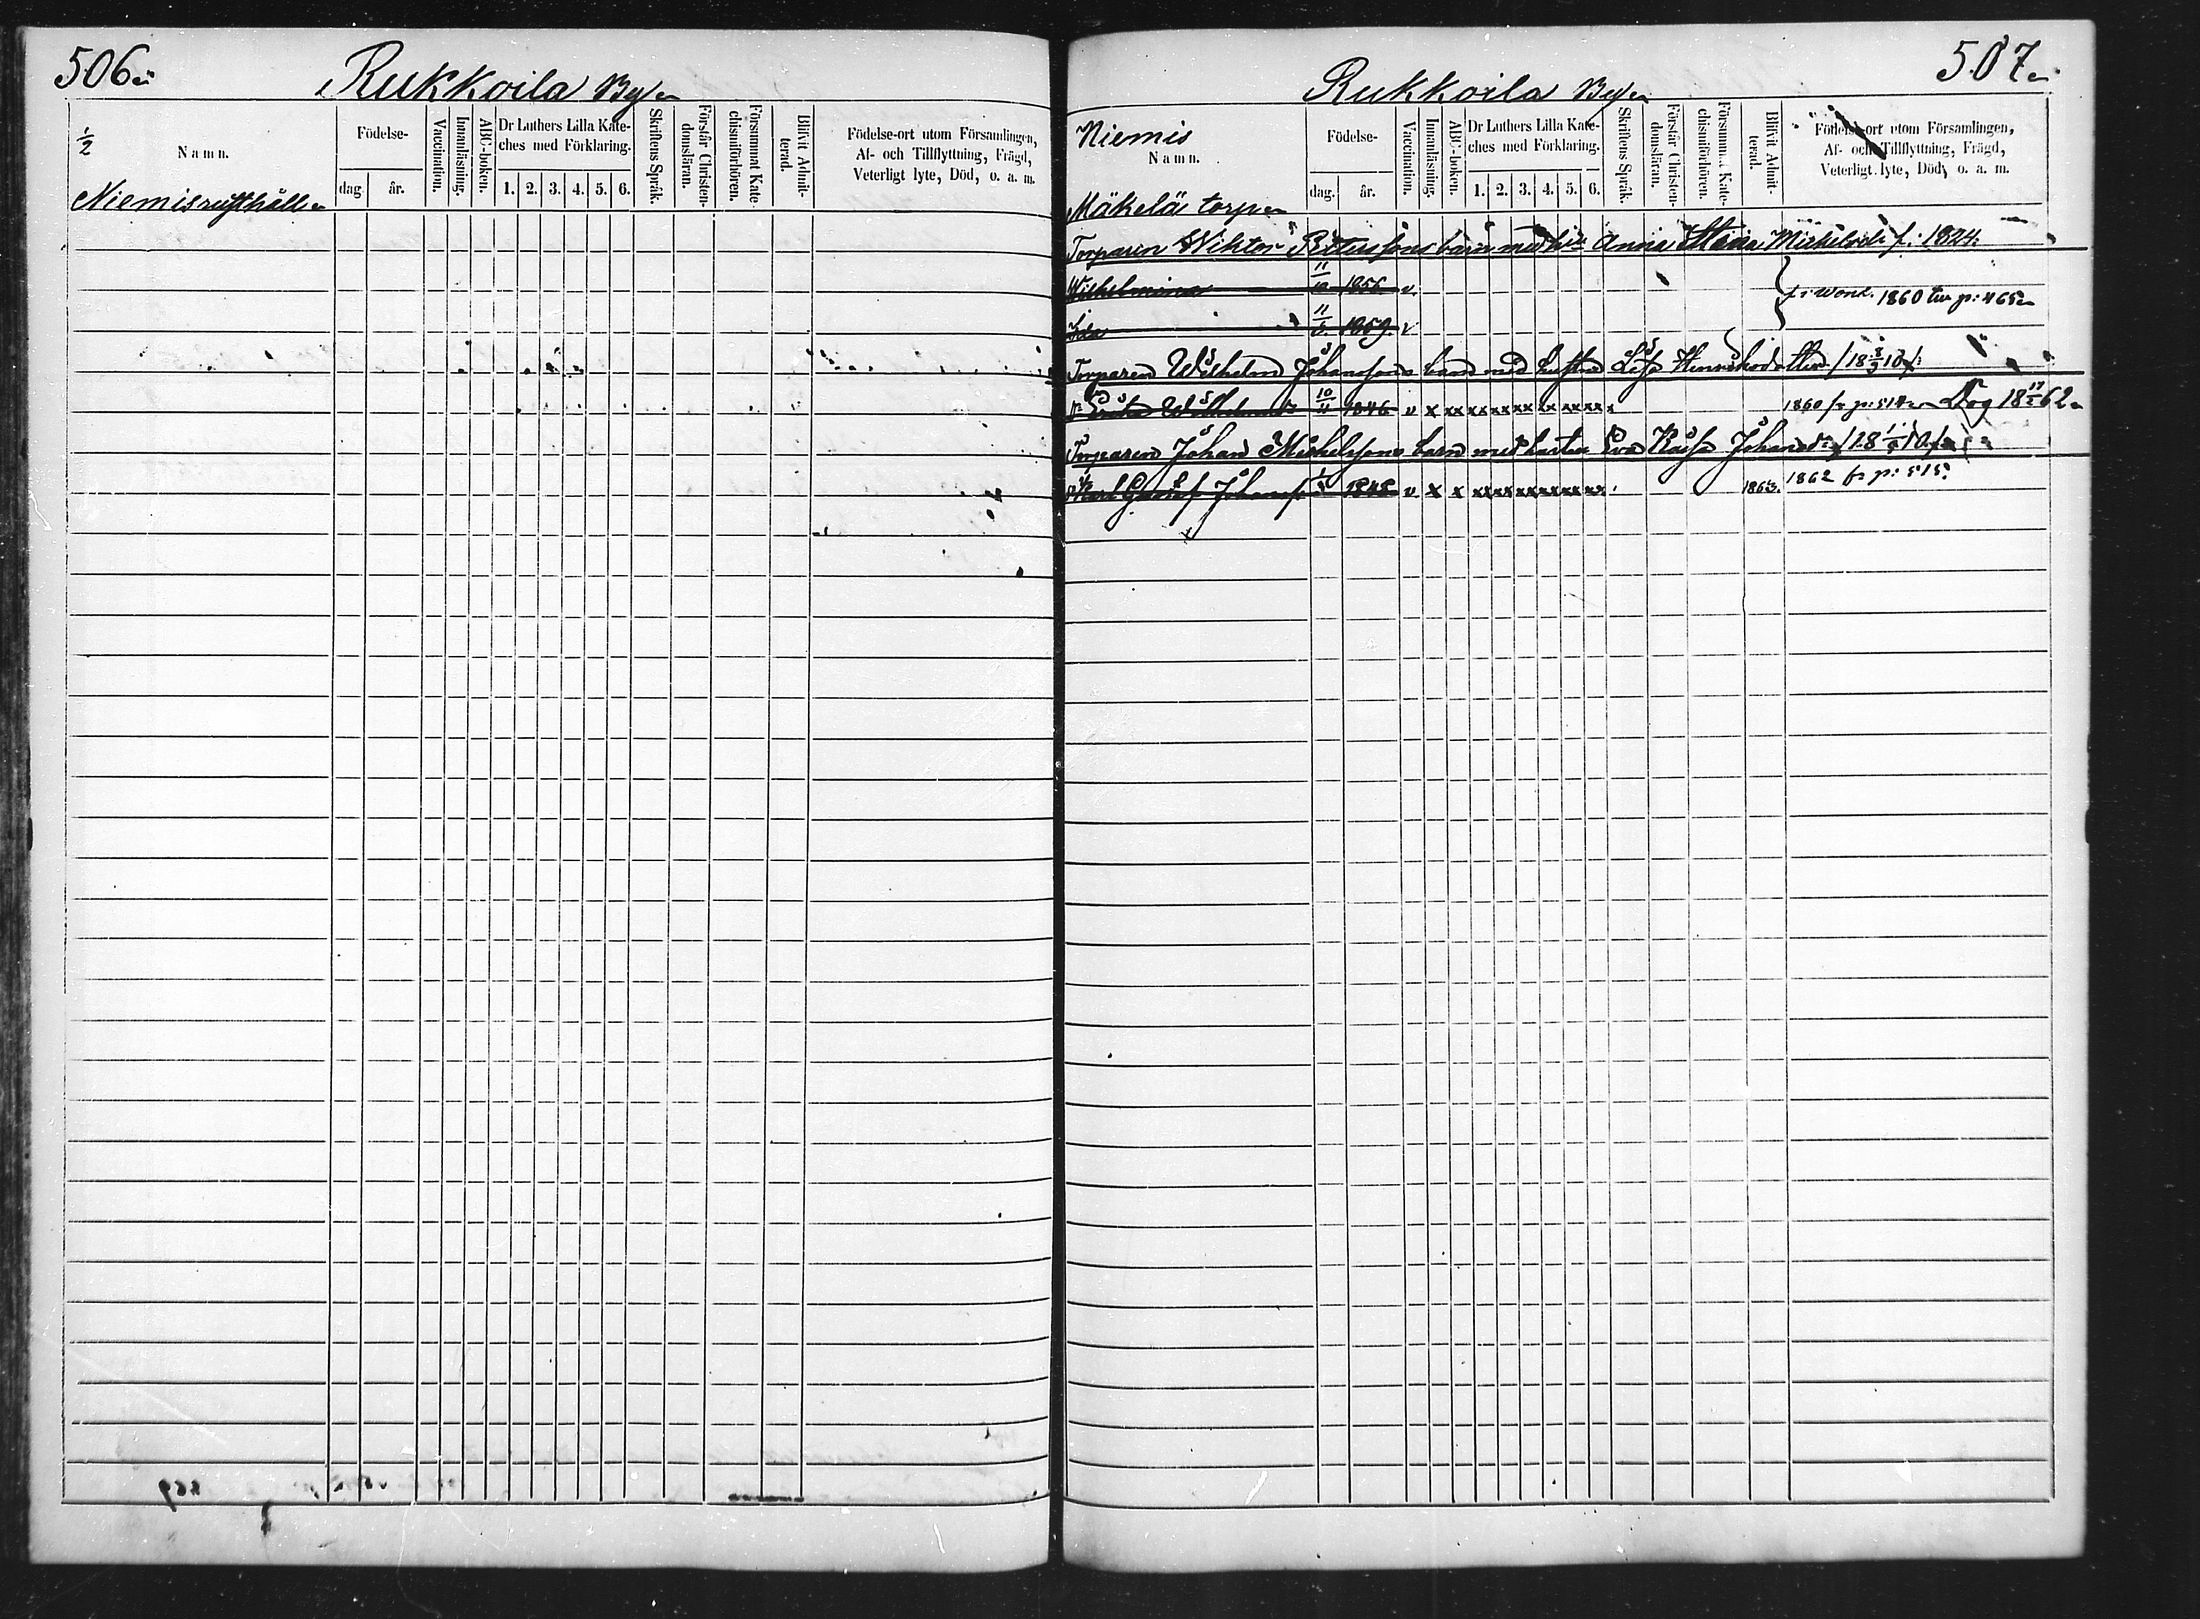 506.
Rukkoila By
1/2
Namn.
Födelse-
dag.
år.
Vaccination.
Innanläsning.
ABC-boken.
Dr Luthers Lilla Kate-
ches med Förklaring.
1. 2. 3. 4. 5. 6.
Skriftens Språk.
Förstår Christen-
domsläran.
Försummat Kate-
chismiförhören.
Blifvit Admit-
terad.
Födelse-ort utom Församlingen,
Af- och Tillflyttning, Frägd,
Veterligt lyte, Död, o. a. m.
Niemis rusthåll
507
Rukkoila By
Niemis
Namn.
Födelse-
dag.
år.
Vaccination.
Innanläsning.
ABC-boken.
Dr Luthers Lilla Kate-
ches med Förklaring.
1. 2. 3. 4. 5. 6.
Skriftens Språk.
Förstår Christen-
domsläran.
Försummat Kate-
chismiförhören.
Blifvit Admit-
terad.
Födelse-ort utom Församlingen,
Af- och Tillflyttning, Frägd,
Veterligt lyte, Död, o. a. m.
Mäkelä torp
Torparen Wiktor barn med Anna f. 1824.
Wilhelmina 11/10 1856 v 1860 p: 465
11/5 1859 v
Torparen Wilhelm Johanssons barn med Lisa Henriksdotter /18 8/3 10/
Wilhelm 10/11 1846 v x xx xx xx xx xx xx 1860 fr p: 514 Dog 18 62
Torparen Johan Michelssons barn med Eva Kaisa Johansd:r
Karl Gustaf Johansson 1845 v x x xx xx xx xx xx xx 1863. 1862 fr p: 515.